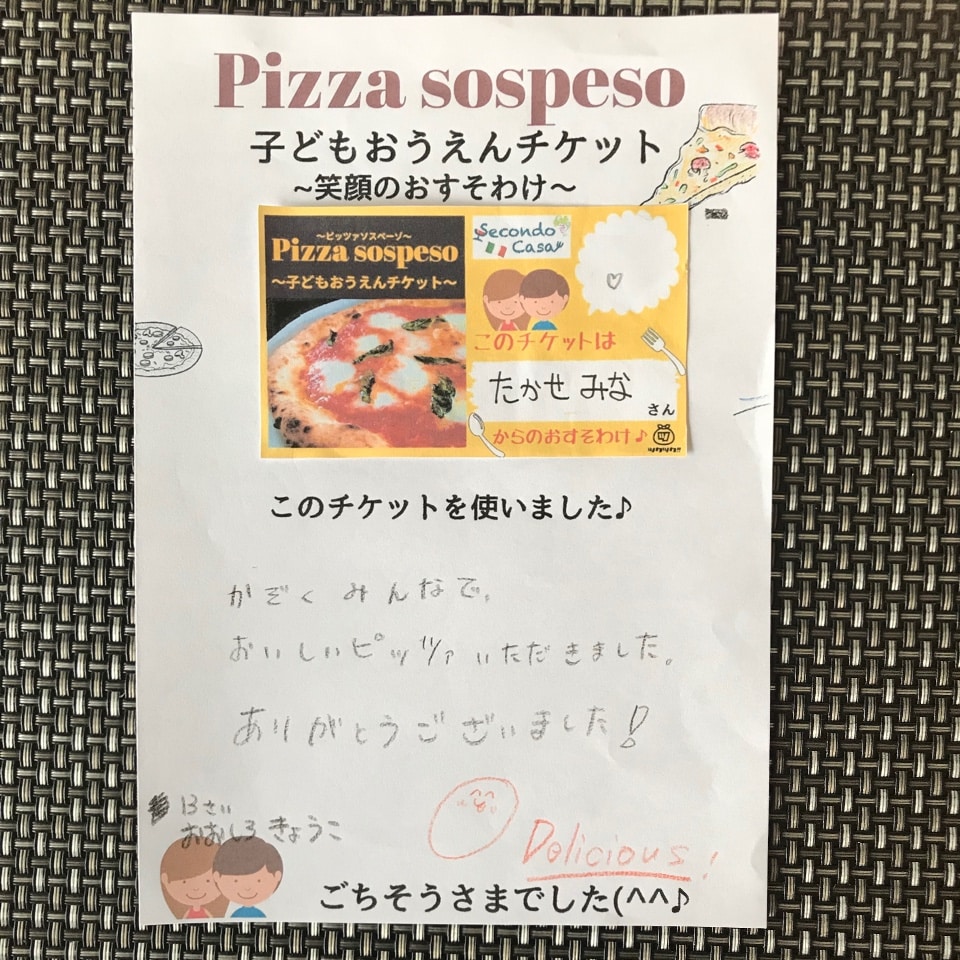 Pizza sospeso
子どもおうえんチケット
~笑顔のおすそわけ~
~ピッツァソスペーゾ~
Pizza sospeso
~子どもおうえんチケット~
Secondo
Casa
このチケットは
たかせ みな
さん
からのおすそわけ♪
このチケットを使いました♪
かぞくみんなで。
おいしいピッツァいただきました。
ありがとうございました!
13さい
おおしろ きょうこ
Delicious!
ごちそうさまでした(^^♪